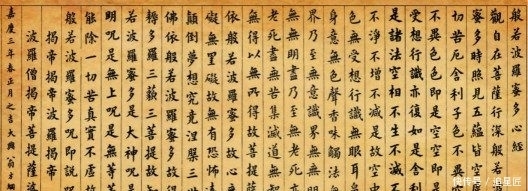 般若波羅蜜多心經
觀自在菩薩行深般若
蜜多時照見五蘊皆空
切苦厄舍利子色不異
不異色色即是空空即
受想行識亦復如是舍
是諸法空相不生不滅
不淨不增不減是故空
色無受想行識無眼耳
身意無色聲香味觸法
界乃至無意識界無無
無明盡乃至無老死亦
盡無苦集滅道無智
無得以無所得故菩提
依般若波羅蜜多故心
礙無罣礙故無有恐
顛倒夢想究竟涅槃三
佛依般若波羅蜜多故
耨多羅三藐三菩提故
若波羅蜜多是大神呪
明呪是無上呪是無
能除一切苦真實不虛
般若波羅蜜多呪即說
揭帝揭帝 波羅揭帝
波羅僧揭帝菩提薩婆
嘉慶三年春正月之吉大興翁方綱
快传号/追星匠